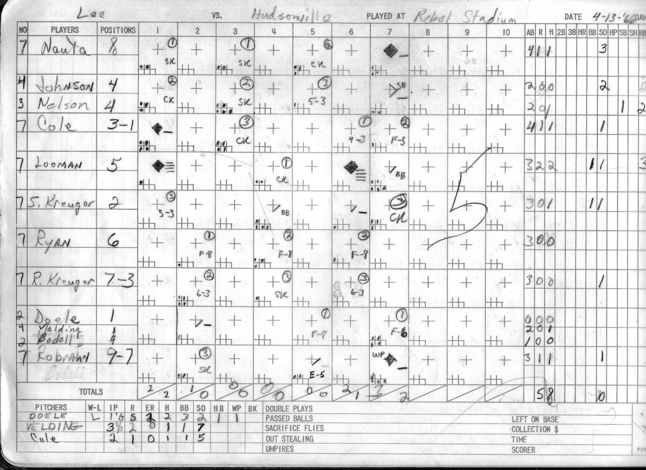 Lee VS. Hudsonville PLAYED AT Rebel Stadium DATE 4-13-
NO PLAYERS POSITIONS 1 2 3 4 5 6 7 8 9 10 AB R H 2B 3B HR BB SO HP SB SH
7 Nauta 8 SK SK CK 4 1 1 3
4 Johnson 4 CK SK 5-3 SB 2 0 0 2
3 Nelson 4 2 0 1 1
7 Cole 3-1 CK 4-3 F-5 4 1 1 1
7 LOOMAN 5 CK BB 3 2 2 1 1
7 S. Kreuger 2 5-3 BB CK 3 0 1 1 1
7 RYAN 6 F-8 F-8 F-8 3 0 0
7 R. Kreuger 7-3 6-3 SK 6-3 3 0 0 1
2 Doele 1 F-7 F-6 0 0 0
4 Velding 1 2 0 1
2 Bodell 9 1 0 0
7 ROBRAHN 9-7 SK E-5 WP 3 1 1 1
TOTALS 2/2 1/0 0/0 0/0 0/0 2/1 3/2 5 8 0
5
PITCHERS W-L IP R ER H BB SO HB WP BK DOUBLE PLAYS
DOELE L PASSED BALLS LEFT ON BASE
VELDING SACRIFICE FLIES COLLECTION $
Cole 2 1 0 1 1 5 OUT STEALING TIME
UMPIRES SCORER